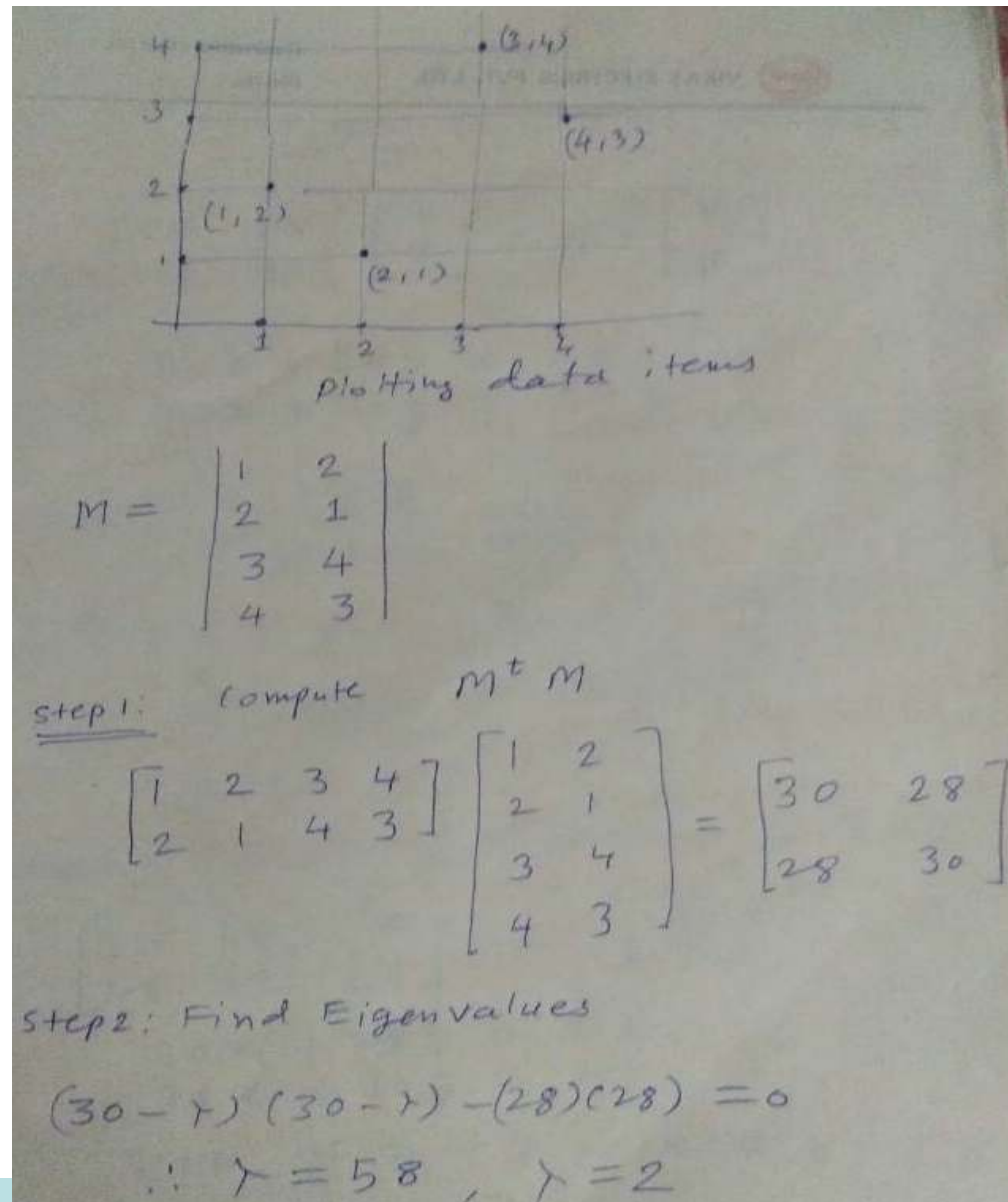 4 (3,4)
3 (4,3)
2 (1, 2)
1 (2,1)
1 2 3 4
Plotting data items
M = | 1 2 |
| 2 1 |
| 3 4 |
| 4 3 |
Step 1: Compute M^t M
[1 2 3 4] [1 2] = [30 28]
[2 1 4 3] [2 1] [28 30]
[3 4]
[4 3]
Step 2: Find Eigenvalues
(30 - λ) (30 - λ) - (28)(28) = 0
∴ λ = 58 , λ = 2